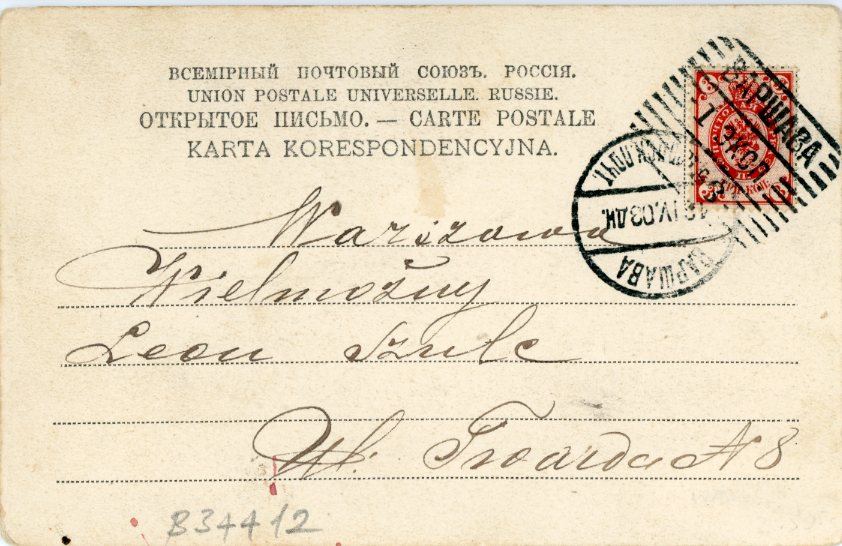 ВСЕМІРНЫЙ ПОЧТОВЫЙ СОЮЗЪ. РОССІЯ.
UNION POSTALE UNIVERSELLE. RUSSIE.
ОТКРЫТОЕ ПИСЬМО. — CARTE POSTALE
KARTA KORESPONDENCYJNA.
ВАРШАВА
1 ЭКСП
IV.03
ВАРШАВА
Warszawa
Wielmożny
Leon Szulc
Ul. Twarda N 8
B34412